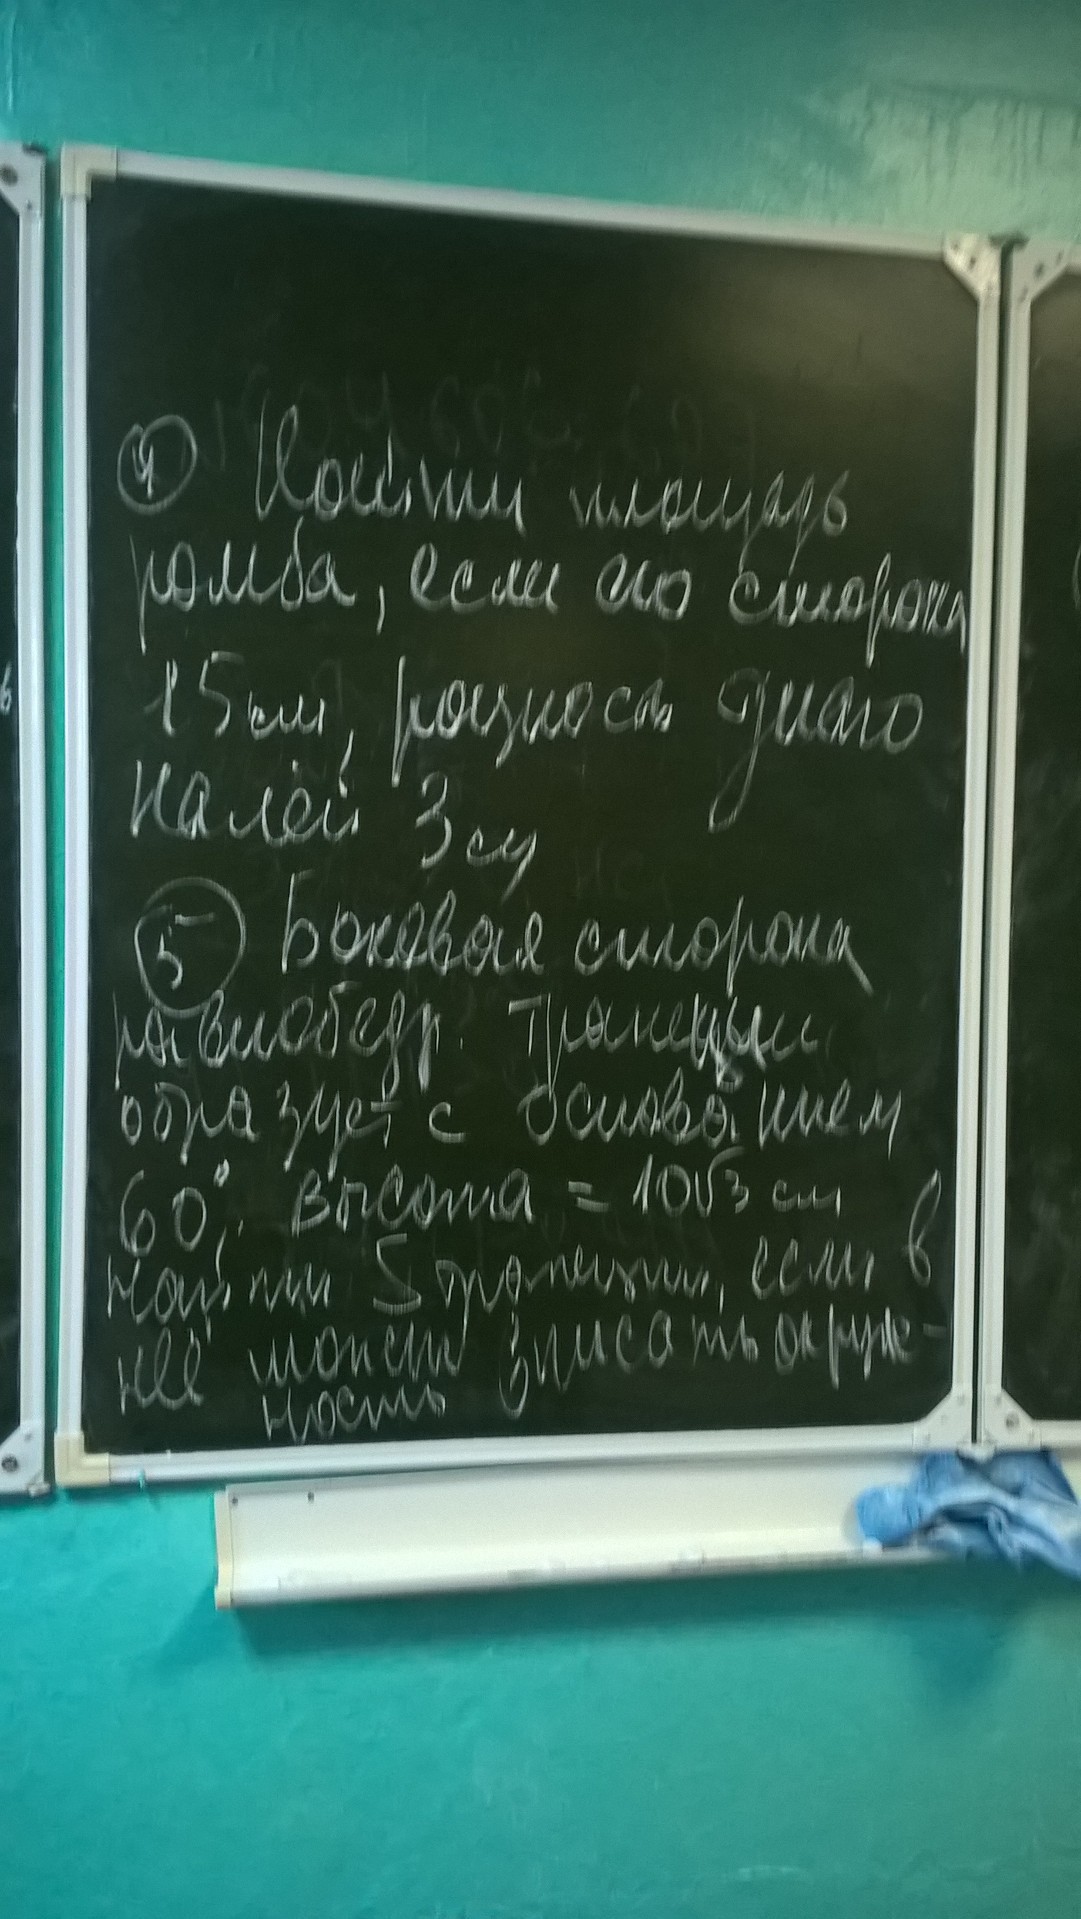 ④ Найти площадь
ромба, если его сторона
15 см, разность диаго
налей 3 см
⑤ Боковая сторона
равнобедр. трапеции
образует с основанием
60°, высота = 10√3 см
Найти S трапеции, если в
неё можно вписать окруж-
ность